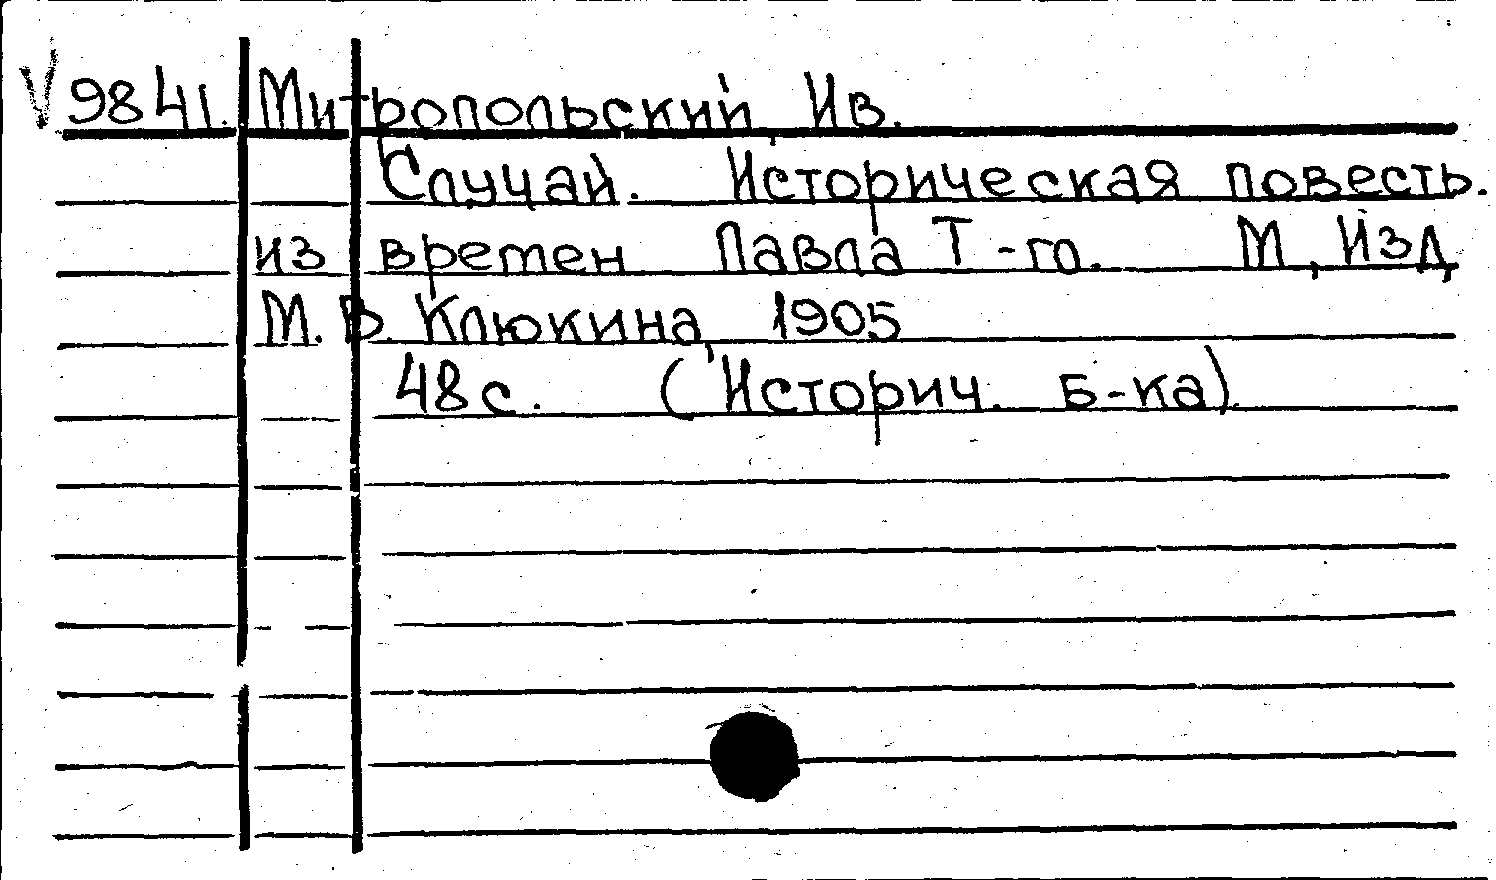 V 9841. Митропольский, Ив.
Случай. Историческая повесть.
из времен Павла I-го. М., Изд.
М. В. Клюкина, 1905
48 с. (Историч. б-ка).